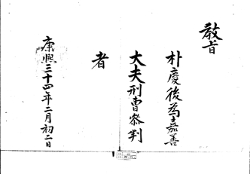 教旨
朴慶後爲嘉善
大夫刑曹參判
者
康熙三十四年二月初二日